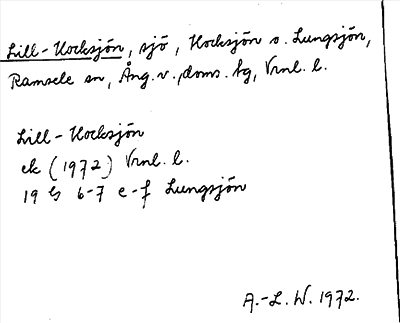 Lill-Hocksjön, sjö, Hocksjön o. Lungsjön,
Ramsele sn, Ång. v. doms. tg, Vrnl. l.
Lill-Hocksjön
ek (1972) Vrnl. l.
19 G 6-7 e-f Lungsjön
A.-L. W. 1972.